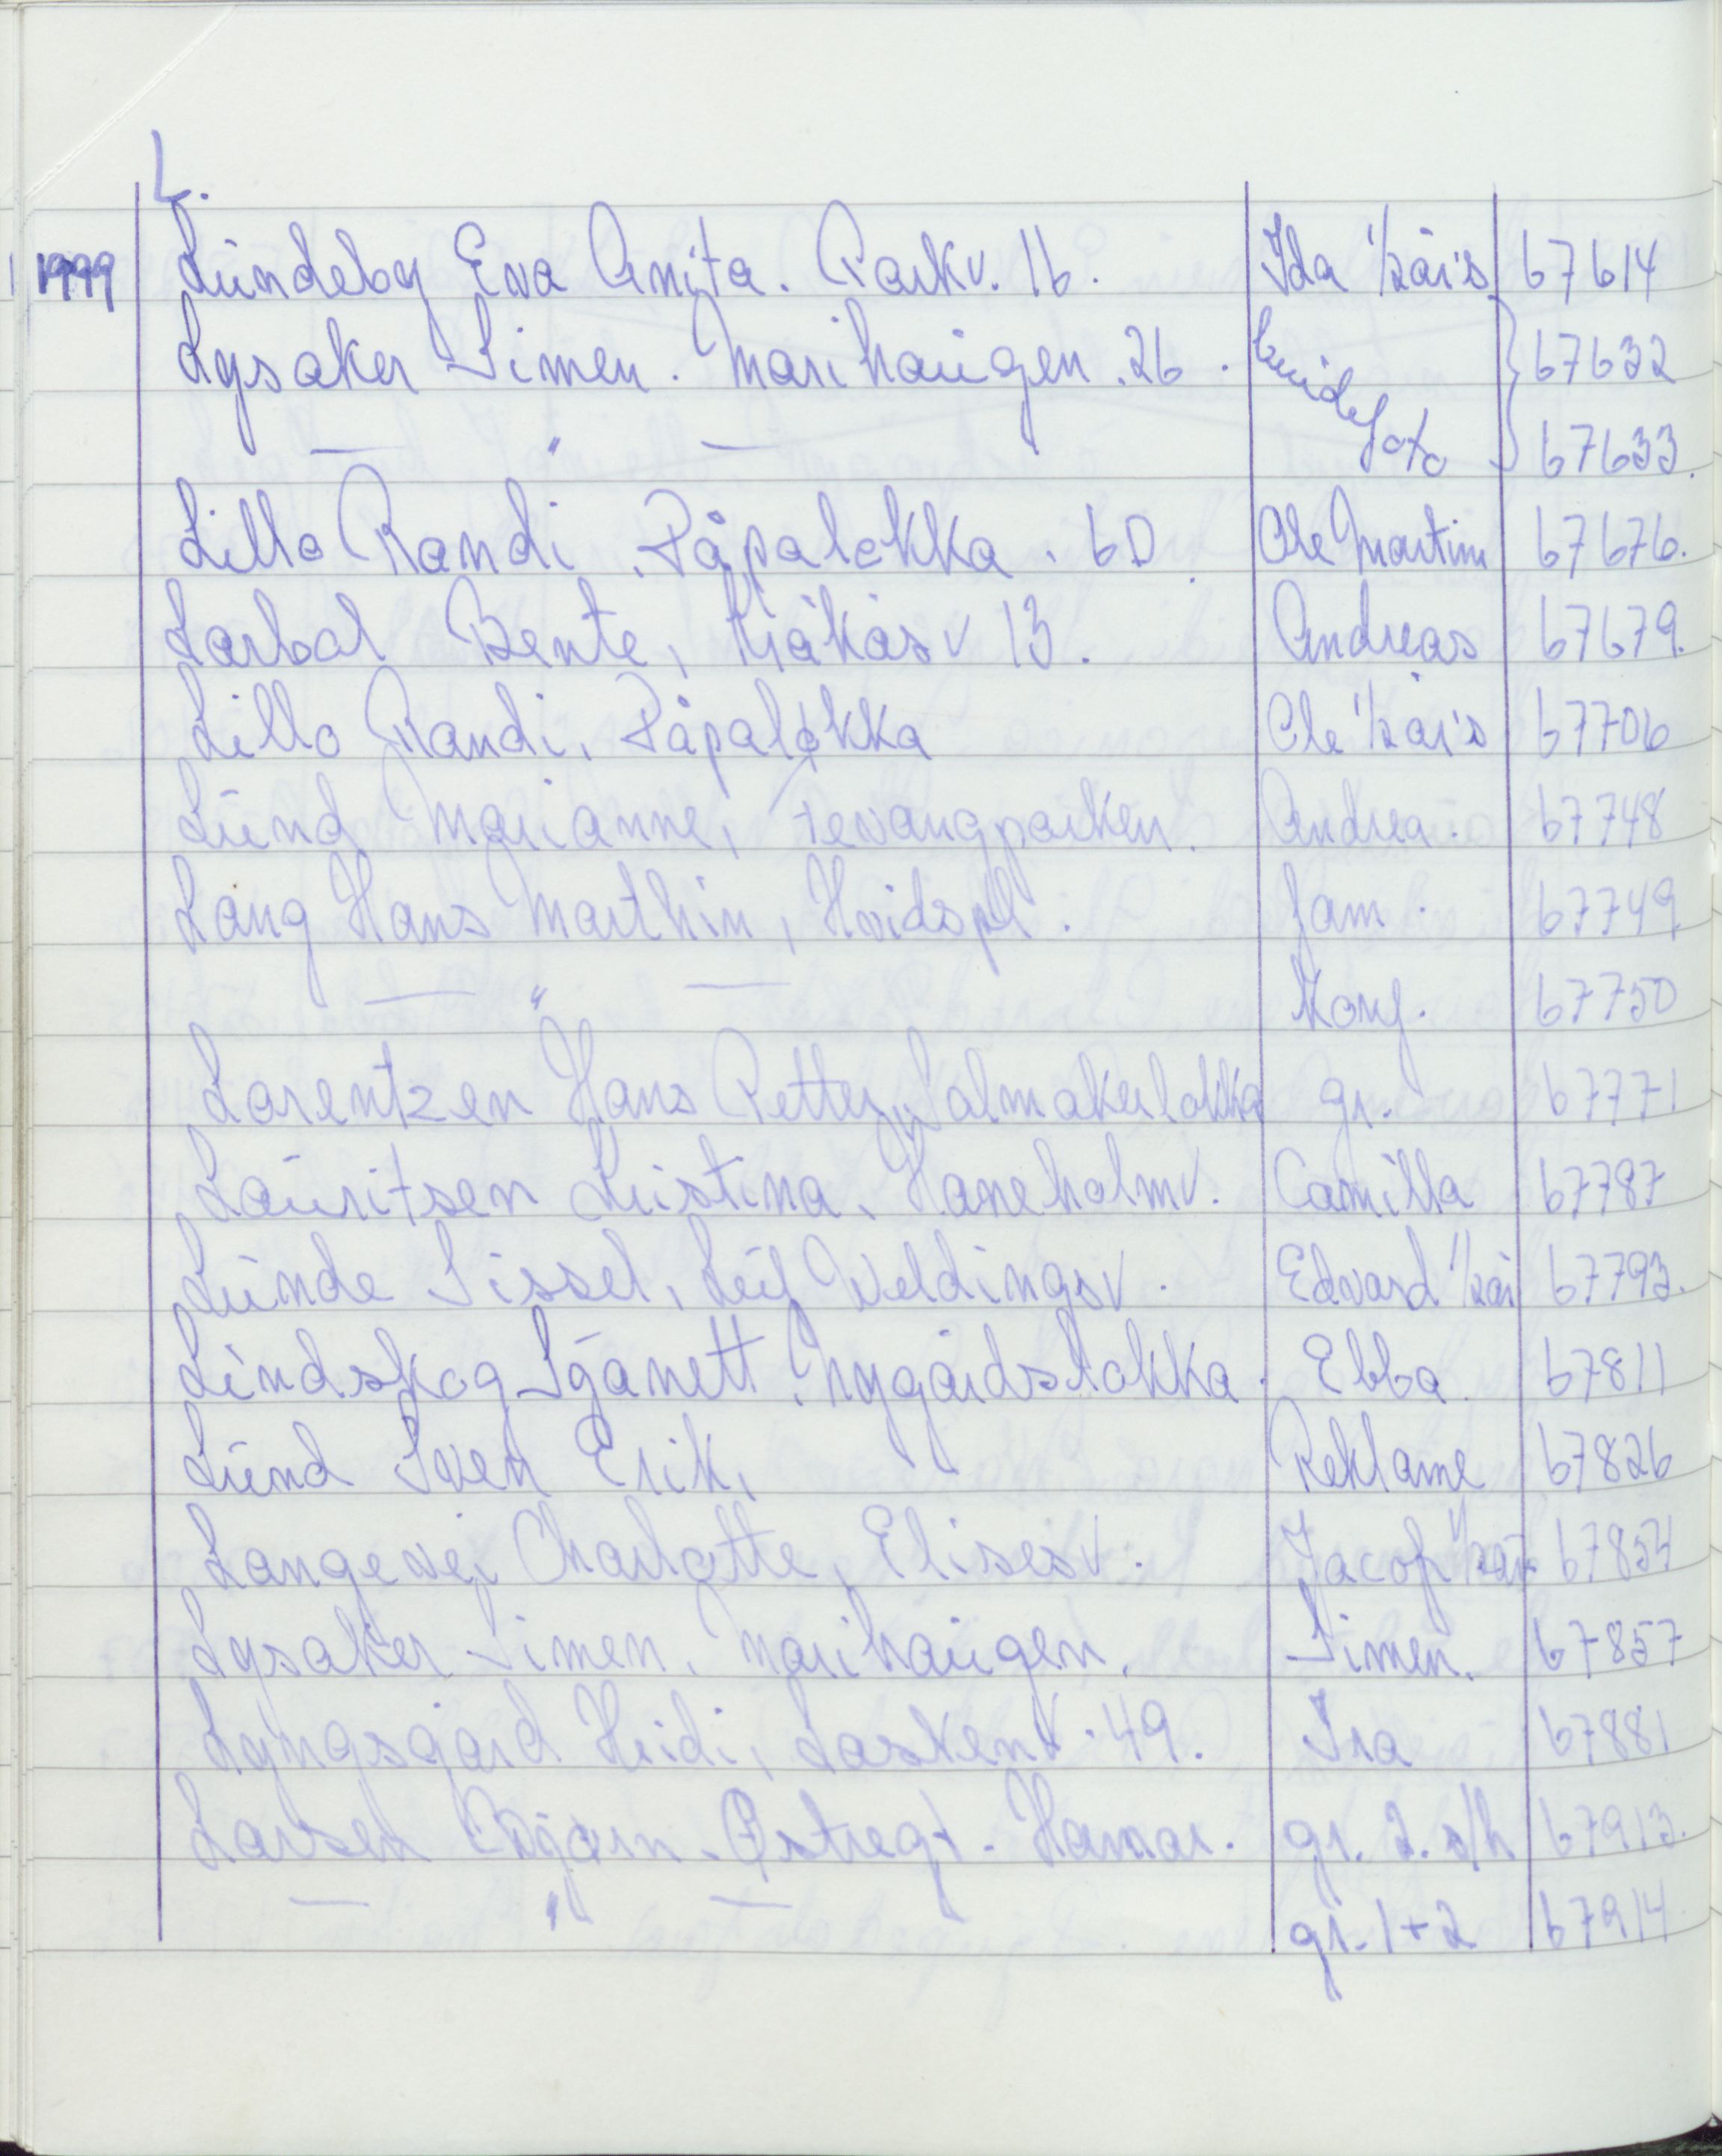 L.
1999 Lundeby Eva Anita. Parkv. 16. Ida 1/2 år's 67614
Lysaker Simen. Marihaugen. 26. 67632
— " — foto 67633.
Lillo Randi. Påpaløkka. 6D. Ole Martin 67676.
Larbal Bente, Kråkåsv 13. Andreas 67679.
Lillo Randi, Påpaløkka Ole 1/2 år's 67706
Lund Marianne, Revangparken. Andrea. 67748
Lang Hans Marthin, Hvidspl. fam. 67749
— " — Konf. 67750
Lorentzen Hans Petter, Salmakerløkka gr. 67771
Lauritsen Kristina, Haneholmv. Camilla 67787
Lunde Sissel, Leif Weldingsv. Edvard 1/2 år 67793.
Lindskog Sjanett, Nygårdsløkka. Ebba. 67811
Lund Sven Erik, Reklame 67826
Langevei Charlotte, Elisesv. Jacob 1/2 år 67854
Lysaker Simen, Marihaugen. Simen. 67857
Lyngsgård Heidi, Laskenv. 49. Ira 67881
Larsen Bjørn. Østregt. Hamar. gr. 2. s/h 67913.
— " — gr. 1+2 67914